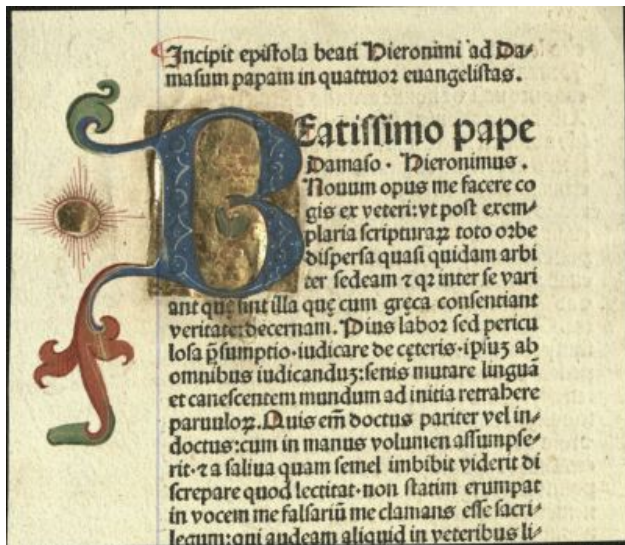 Incipit epistola beati Hieronimi ad Da⸗
masum papam in quattuor euangelistas.
BEatissimo pape
Damaso · Hieronimus .
Nouum opus me facere co
gis ex veteri: vt post exem⸗
plaria scripturaꝝ toto orbe
dispersa quasi quidam arbi
ter sedeam ⁊ qꝛ inter se vari
ant que sint illa quę cum gręca consentiant
veritate: decernam. Pius labor sed pericu
losa p̃sumptio · iudicare de cęteris · ipsuꝫ ab
omnibus iudicanduꝫ: senis mutare linguā
et canescentem mundum ad initia retrahere
paruuloꝝ. Quis em̄ doctus pariter vel in⸗
doctus: cum in manus volumen assumpse⸗
rit · ⁊ a saliua quam semel imbibit viderit di
screpare quod lectitat · non statim erumpat
in vocem me falsariū me clamans esse sacri⸗
legum: qui audeam aliquid in veteribus li⸗